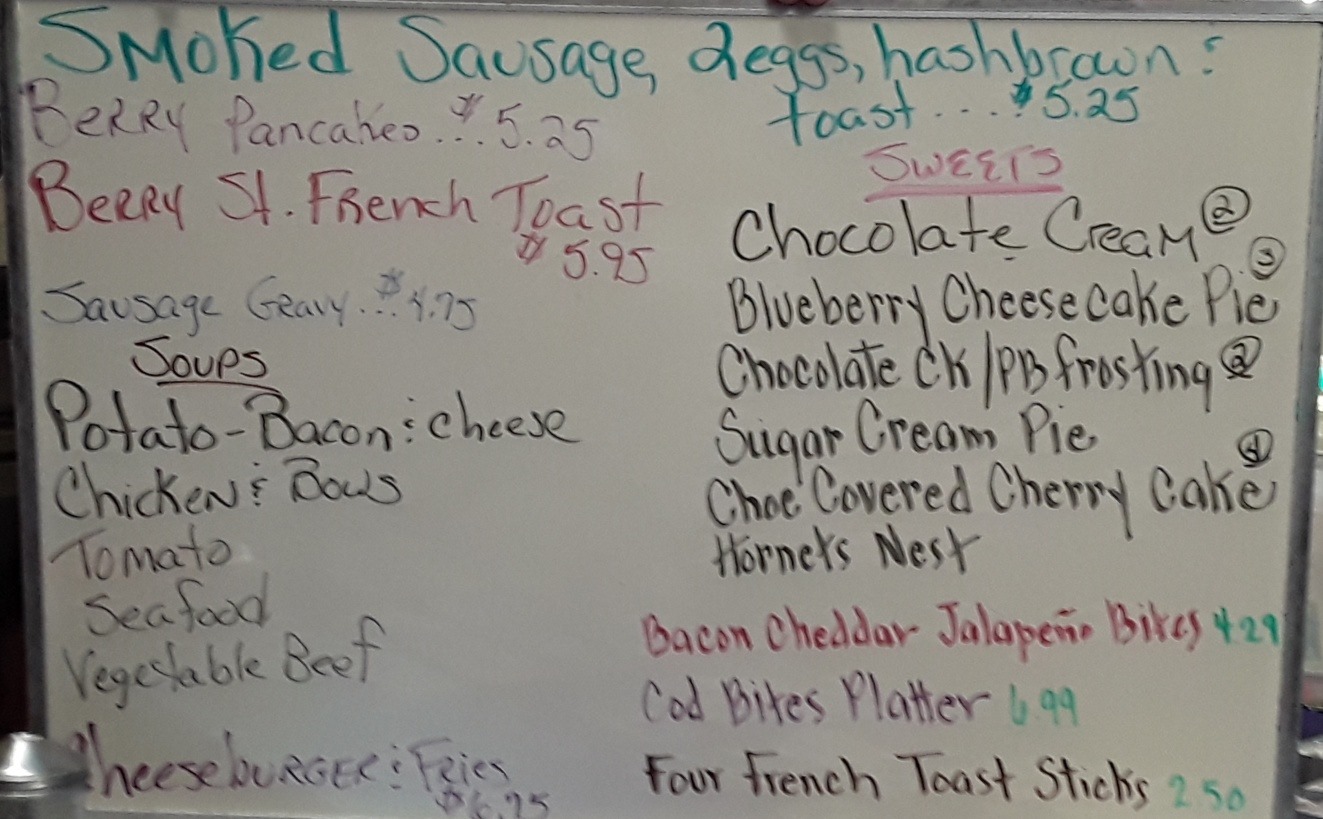 Smoked Sausage, 2eggs, hashbrown &
toast....$5.25
Berry Pancakes..$.5.25
Berry St. French Toast
$5.95
Sausage Gravy..$.4.75
Soups
Potato-Bacon & cheese
Chicken & Bows
Tomato
Seafood
Vegetable Beef
Cheeseburger & Fries
$6.95
SWEETS
Chocolate Cream ②
Blueberry Cheesecake Pie ③
Chocolate CK/PB frosting ②
Sugar Cream Pie
Choc Covered Cherry Cake
Hornets Nest
Bacon Cheddar Jalapeño Bites 4.29
Cod Bites Platter 6.99
Four French Toast Sticks 2.50